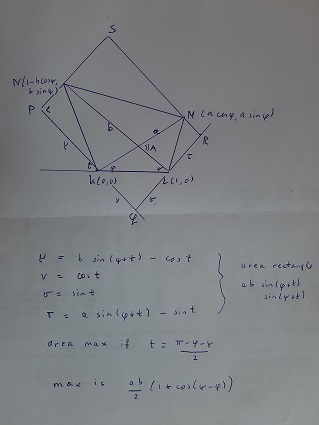 S
N(1-bcosψ,
b sinψ)
P
M (a cosφ, a sinφ)
R
b
a
A
μ
τ
t
φ
ψ
K(0,0)
L(1,0)
ν
σ
Q
μ = b sin(ψ+t) - cos t
ν = cos t
σ = sin t
τ = a sin(φ+t) - sin t
area rectangle
ab sin(φ+t)
sin(ψ+t)
area max if t = π-φ-ψ / 2
max is ab/2 (1+cos(ψ-φ))